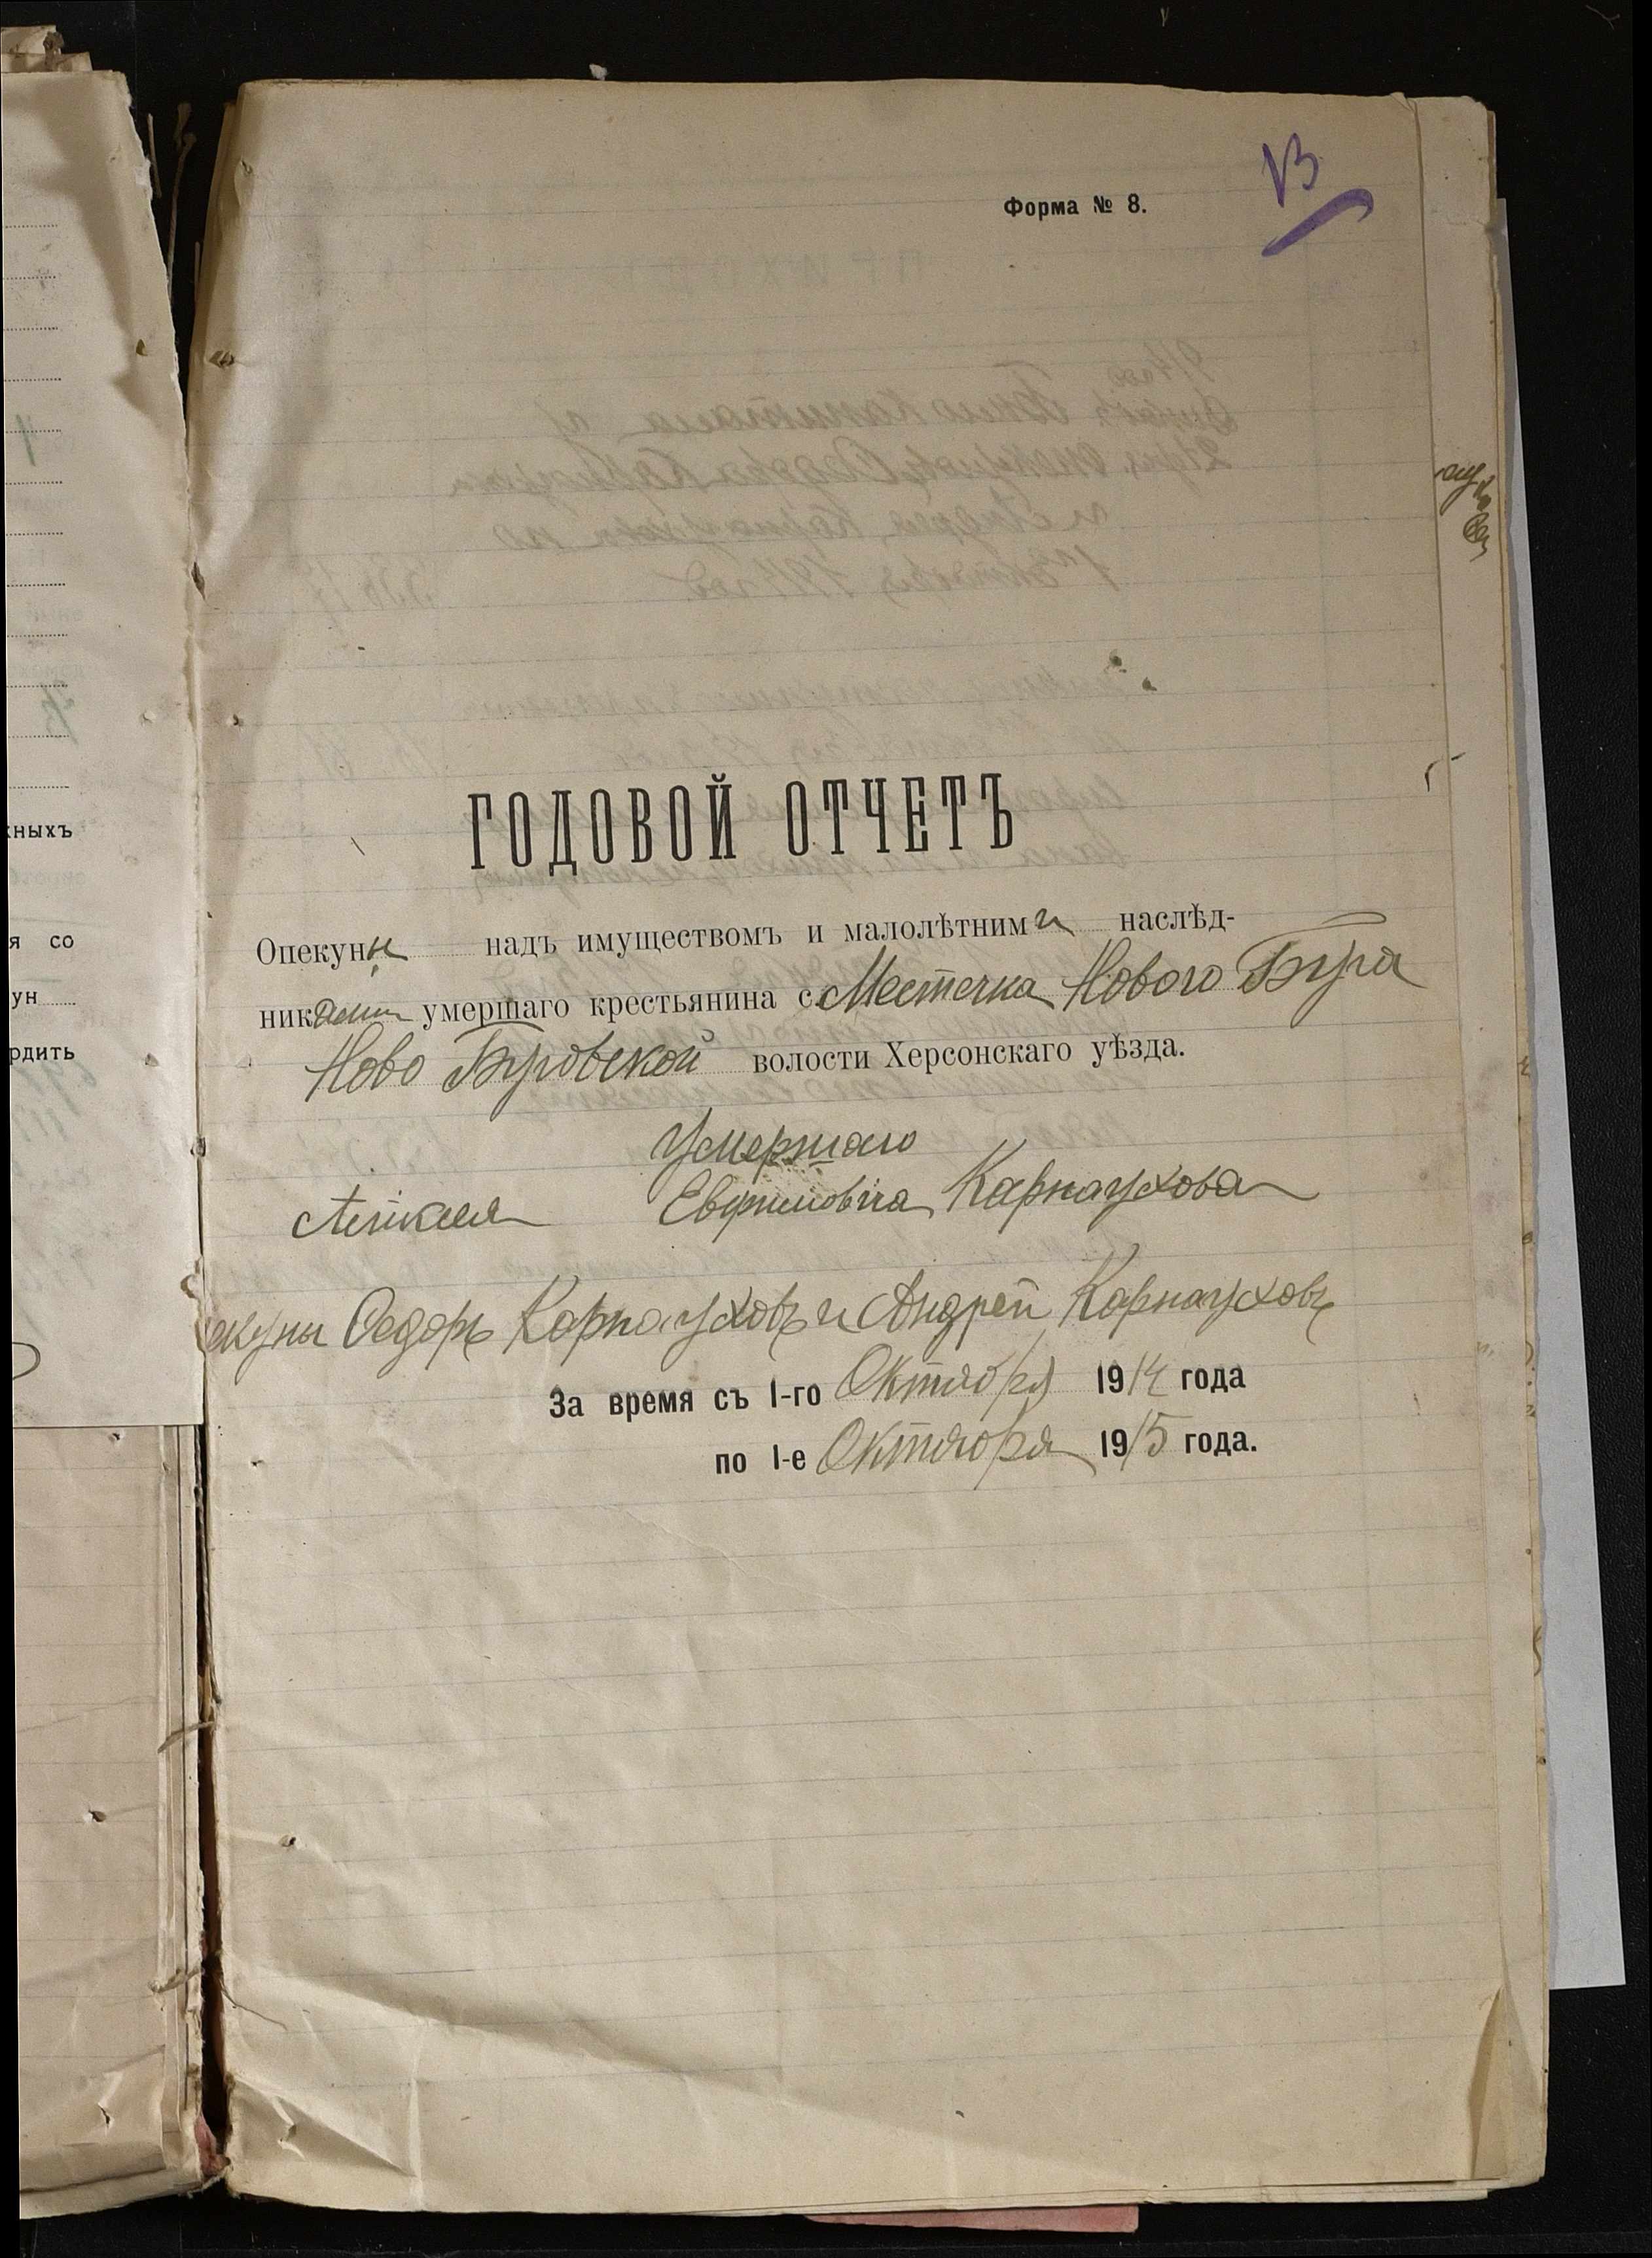 13
Форма № 8.
ГОДОВОЙ ОТЧЕТЪ
Опекуны надъ имуществомъ и малолѣтними наслѣд-
никами умершаго крестьянина с. Местечка Нового Буга
Ново Бугской волости Херсонскаго уѣзда.
Умершаго
Евфимовича Карнаухова
екуны Федоръ Карнауховъ и Андрей Карнауховъ
За время съ 1-го Октября 1914 года
по 1-е Октября 1915 года.
жныхъ
я со
ун
рдить